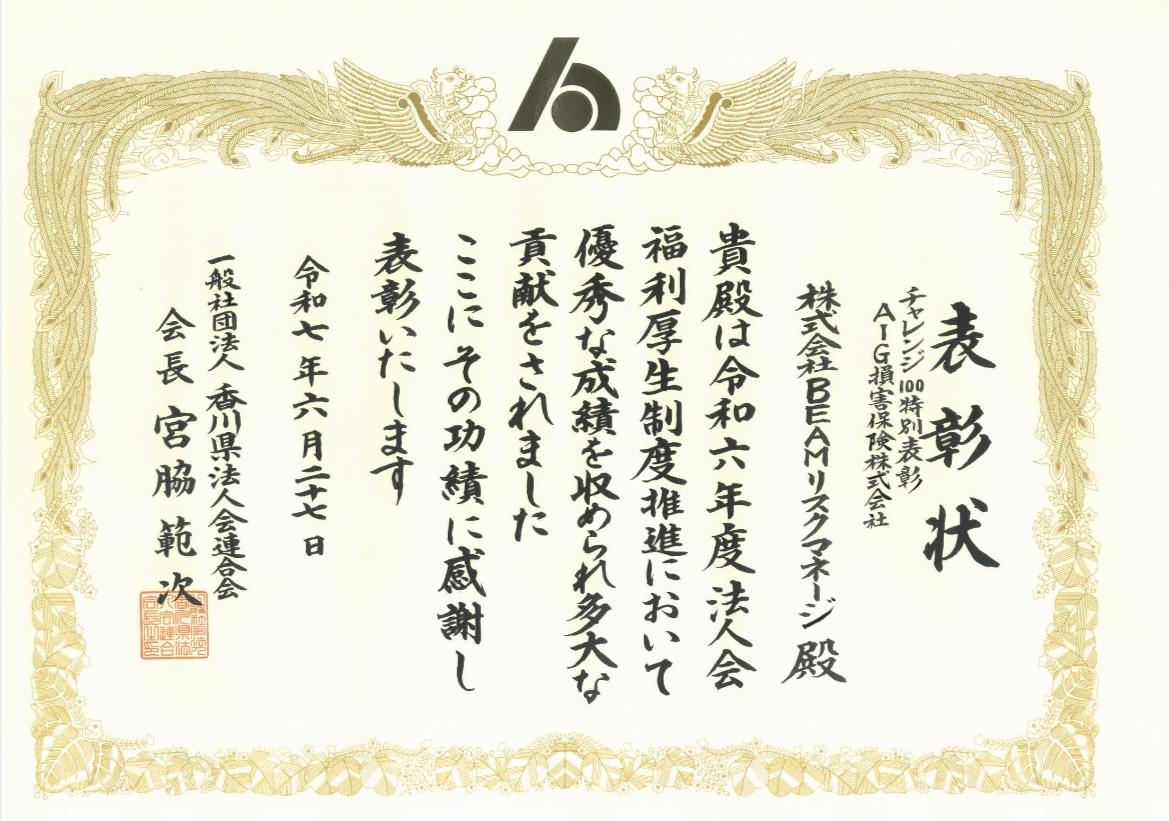 表彰状
チャレンジ100特別表彰
AIG損害保険株式会社
株式会社BEAMリスクマネージ 殿
貴殿は令和六年度法人会
福利厚生制度推進において
優秀な成績を収められ多大な
貢献をされました
ここにその功績に感謝し
表彰いたします
令和七年六月二十七日
一般社団法人 香川県法人会連合会
会長 宮脇 範次